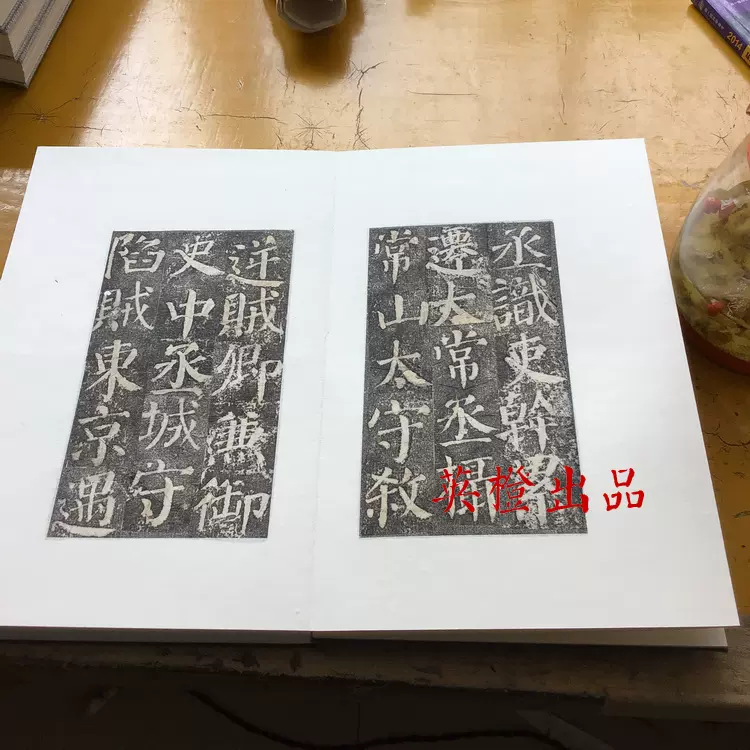 丞識吏幹
遷大常丞攝
常山太守殺
逆賊卿兼御
史中丞城守
陷賊東京遇
橙出品
2014